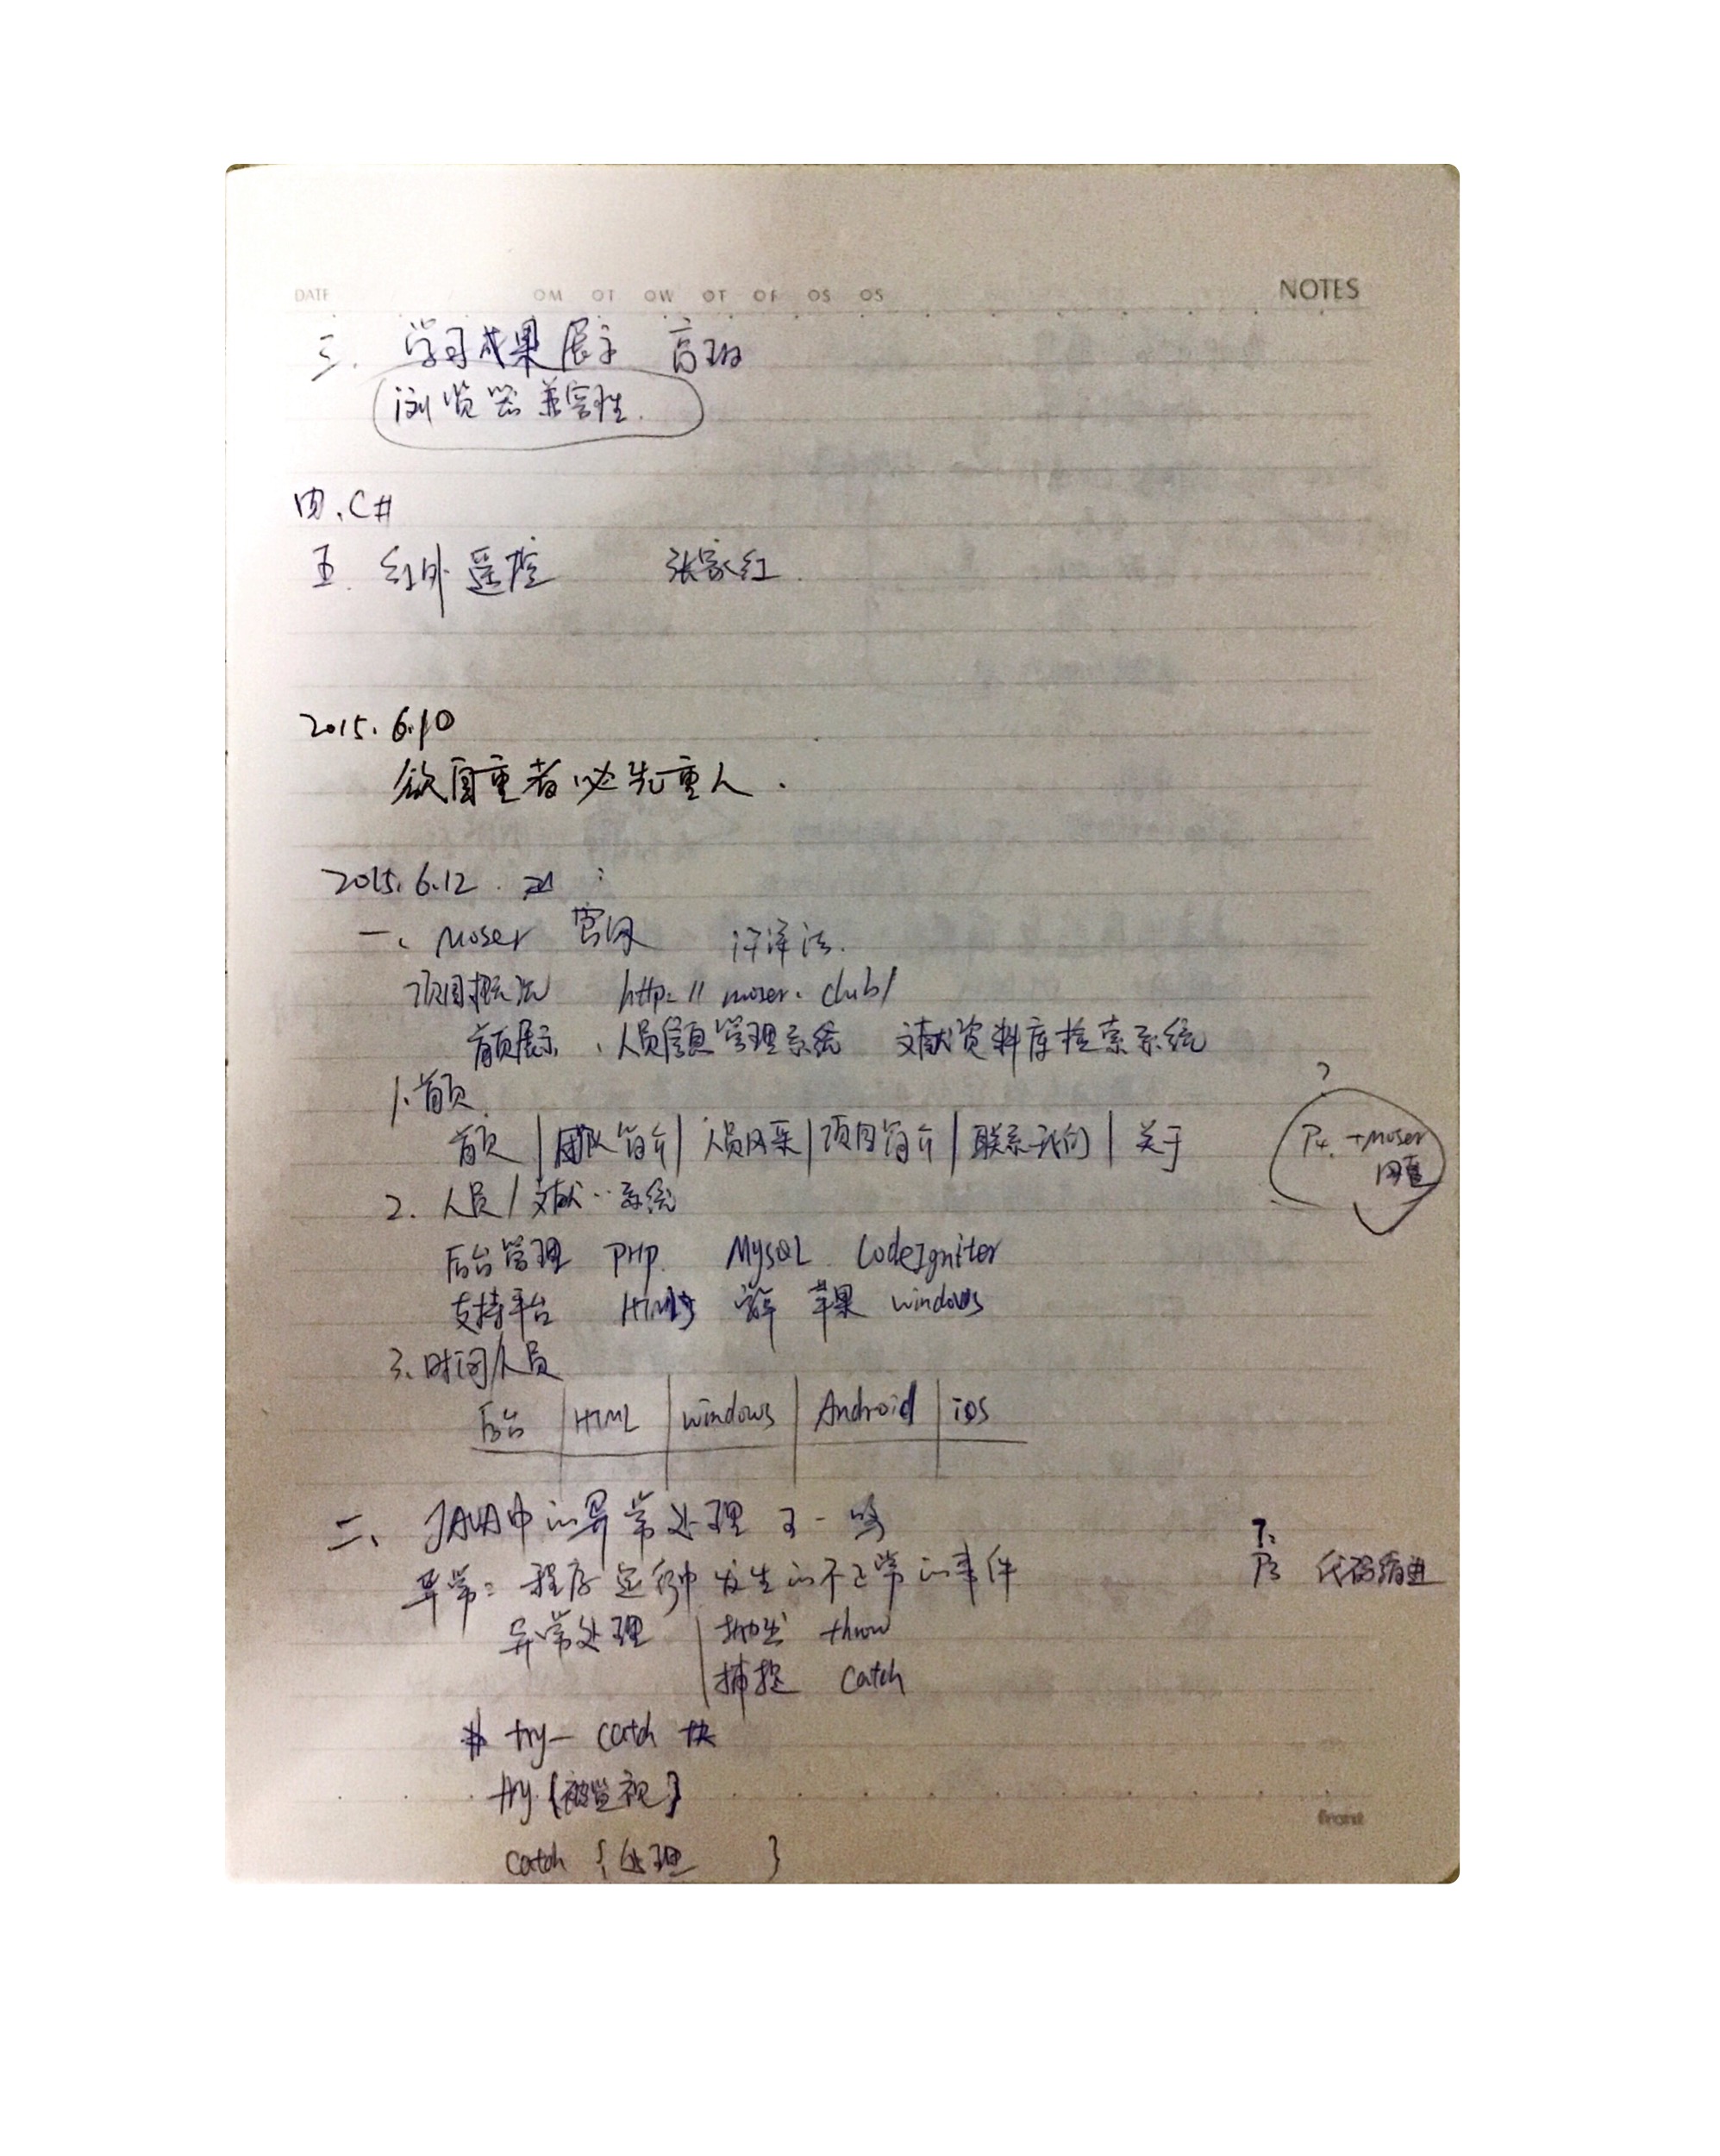 DATE OM OT OW OT OF OS OS NOTES
三. 学习成果展示 高珊
浏览器兼容性.
四.C#
五. 红外遥控 张家红.
2015.6.10
欲自重者必先重人.
2015.6.12.
一、Moser 官网 许泽法.
项目概况 http://moser.club/
首页展示、人员信息管理系统 文献资料库检索系统
1.首页.
首页|团队简介|人员风采|项目简介|联系我们|关于
?
P4. +Moser
网重
2. 人员/文献…系统
后台管理 PHP. MySQL CodeIgniter
支持平台 HTML5 安卓 苹果 windows
3.时间/人员
后台|HTML|windows|Android|iOS
二、JAVA中的异常处理 王一鸣
异常:程序运行中发生的不正常的事件
P3 代码缩进
异常处理 | 抛出 throw
捕捉 catch
# try—catch 块
try{被监视}
catch {处理 }
front